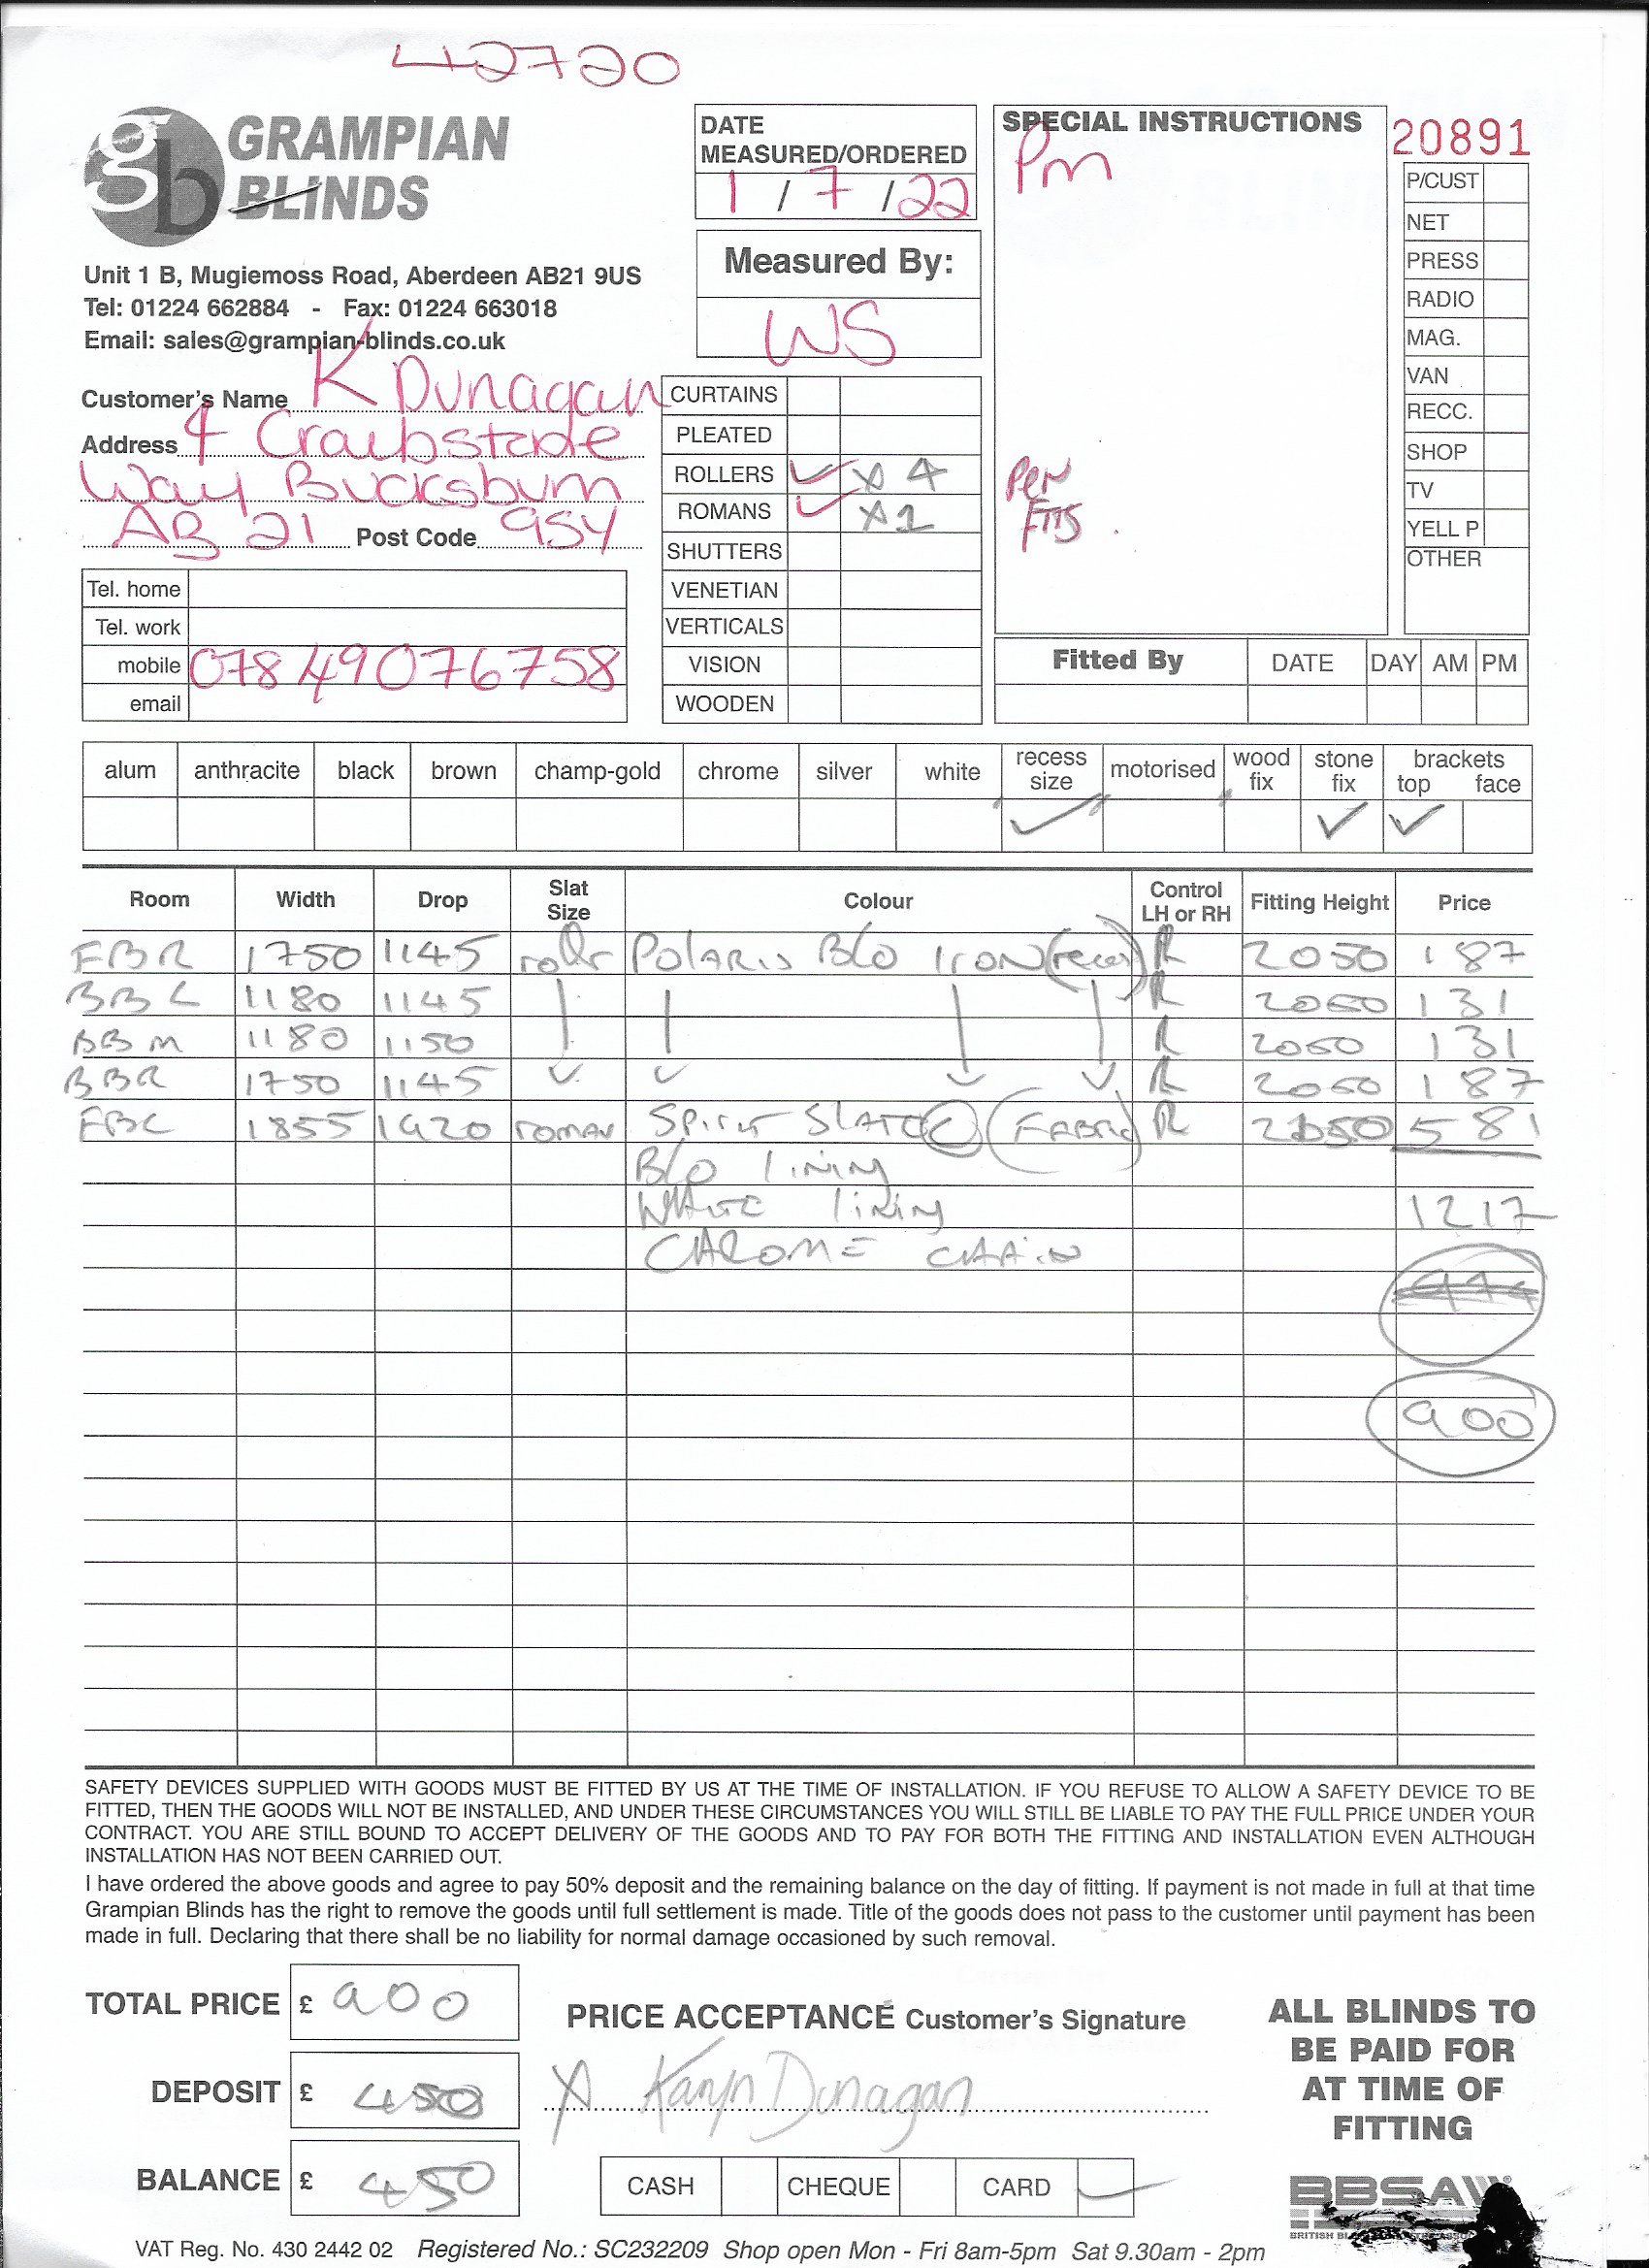 42720
GRAMPIAN
BLINDS
Unit 1 B, Mugiemoss Road, Aberdeen AB21 9US
Tel: 01224 662884 - Fax: 01224 663018
Email: sales@grampian-blinds.co.uk
DATE
MEASURED/ORDERED
1 / 7 / 22
Measured By:
WS
SPECIAL INSTRUCTIONS
Pm
20891
P/CUST
NET
PRESS
RADIO
MAG.
VAN
RECC.
SHOP
TV
YELL P
OTHER
Customer's Name K Dunagan
Address 4
Way Bucksburn
AB 21 Post Code 9SY
Tel. home
Tel. work
mobile 07849076758
email
CURTAINS
PLEATED
ROLLERS ✓ x 4
ROMANS ✓ x 1
SHUTTERS
VENETIAN
VERTICALS
VISION
WOODEN
Fitted By DATE DAY AM PM
alum anthracite black brown champ-gold chrome silver white recess size motorised wood fix stone fix brackets top face
✓ ✓ ✓
Room Width Drop Slat Size Colour Control LH or RH Fitting Height Price
FBR 1750 1145 rollr POLARIS B/O IRON (reces) R 2050 187
BBL 1180 1145 R 2050 131
BBM 1180 1150 R 2050 131
BBR 1750 1145 R 2050 187
FBL 1855 1920 roman SPIRIT SLATE (C) (FABRIC) R 581
B/O lining
WHITE lining 1217
CHROME CHAIN
900
SAFETY DEVICES SUPPLIED WITH GOODS MUST BE FITTED BY US AT THE TIME OF INSTALLATION. IF YOU REFUSE TO ALLOW A SAFETY DEVICE TO BE
FITTED, THEN THE GOODS WILL NOT BE INSTALLED, AND UNDER THESE CIRCUMSTANCES YOU WILL STILL BE LIABLE TO PAY THE FULL PRICE UNDER YOUR
CONTRACT. YOU ARE STILL BOUND TO ACCEPT DELIVERY OF THE GOODS AND TO PAY FOR BOTH THE FITTING AND INSTALLATION EVEN ALTHOUGH
INSTALLATION HAS NOT BEEN CARRIED OUT.
I have ordered the above goods and agree to pay 50% deposit and the remaining balance on the day of fitting. If payment is not made in full at that time
Grampian Blinds has the right to remove the goods until full settlement is made. Title of the goods does not pass to the customer until payment has been
made in full. Declaring that there shall be no liability for normal damage occasioned by such removal.
TOTAL PRICE £ 900
DEPOSIT £ 450
BALANCE £ 450
PRICE ACCEPTANCE Customer's Signature
X Karyn Dunagan
CASH CHEQUE CARD ✓
ALL BLINDS TO
BE PAID FOR
AT TIME OF
FITTING
BBSA
VAT Reg. No. 430 2442 02 Registered No.: SC232209 Shop open Mon - Fri 8am-5pm Sat 9.30am - 2pm